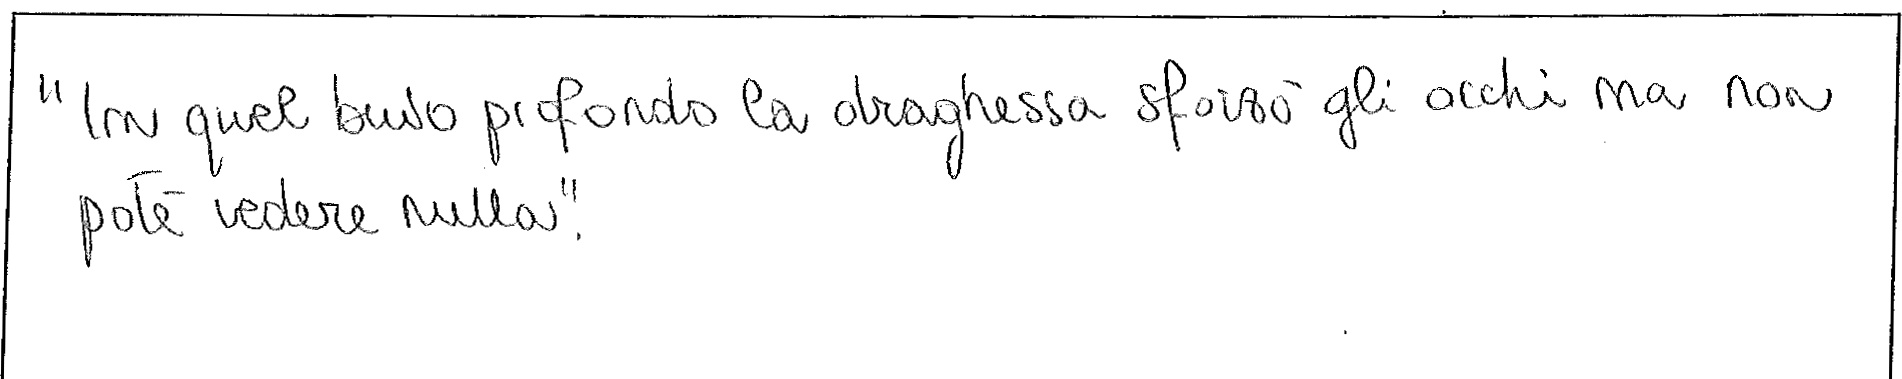 "In quel buio profondo la draghessa sforzò gli occhi ma non
potē vedere nulla".